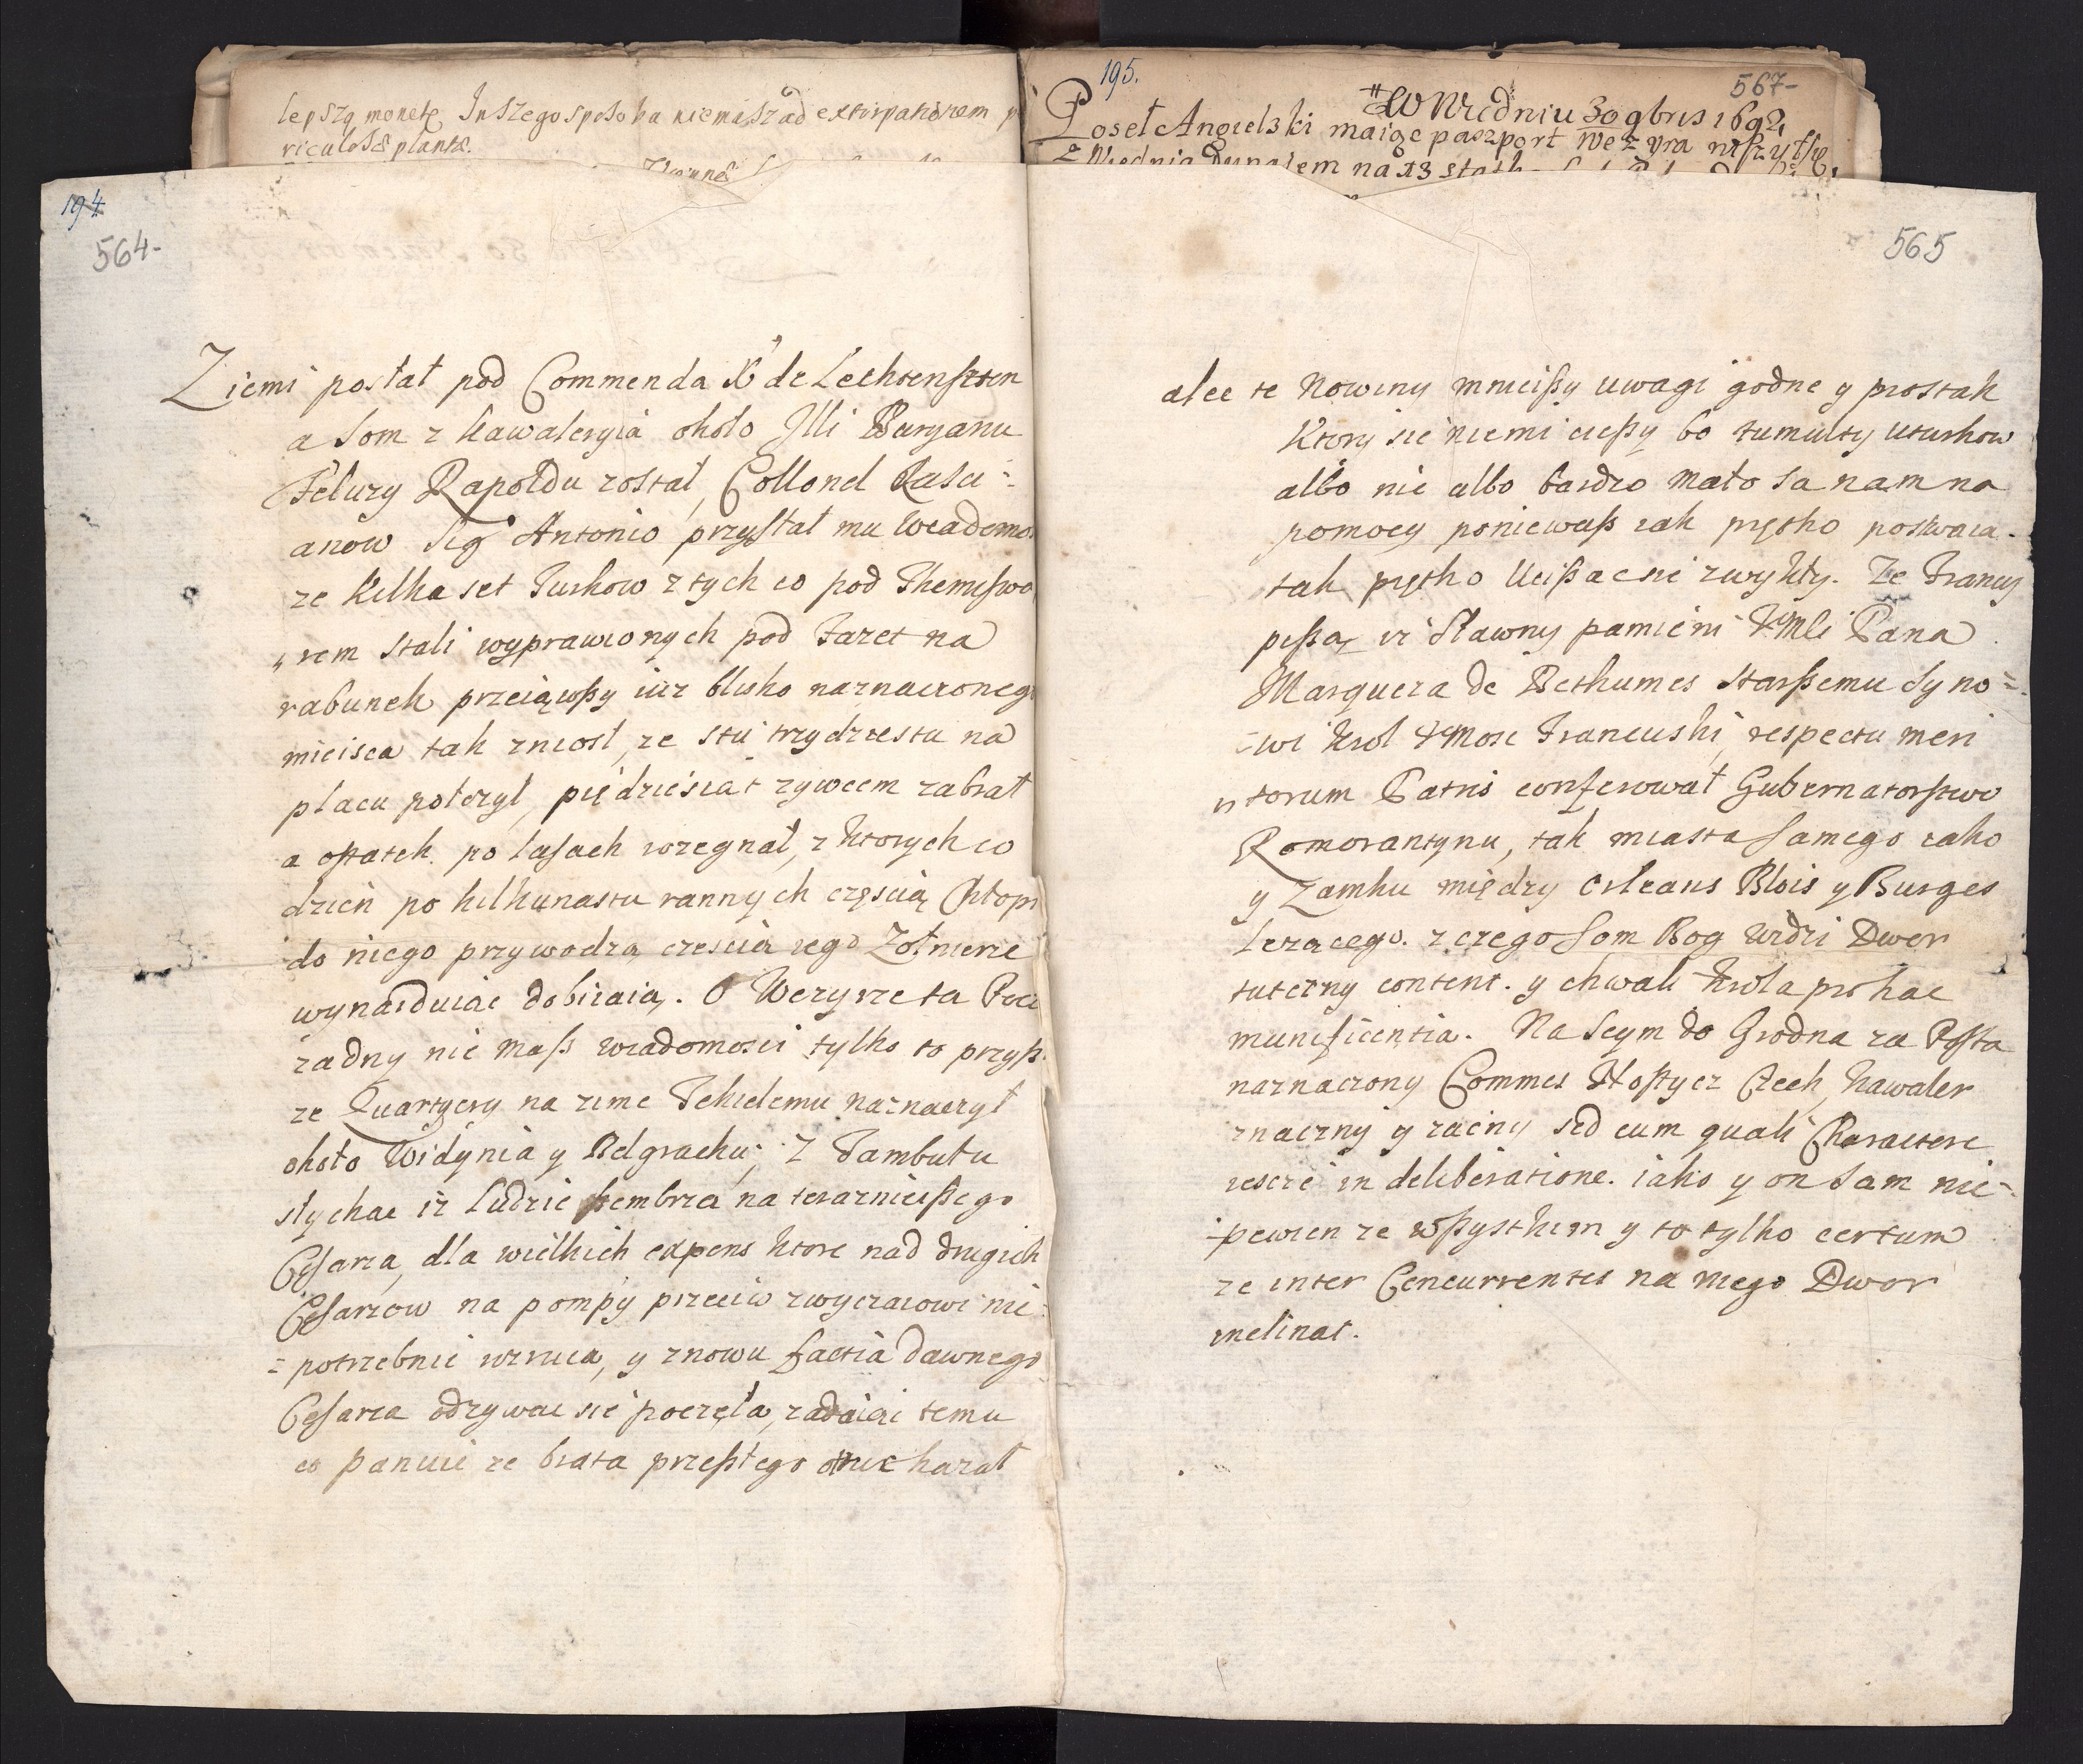 lepszą monetę Inszego sposoba niemasz ad extirpationem
riculosæ plantæ.
195.
567-
W Wiedniu 30 9bris 1692
Poseł Angielski maiąc paszport Wezyra
z Wiednia Dunaiem na 13
194
564-
Ziemi posłał pod Commenda X de Lechtensztein
a Som z kawaleryią około Illi Maryanu
Feluzy Rapoldu został, Collonel Rasci-
anow Sig Antonio przysłał mu wiadomo
ze kilka set Turkow z tych co pod Themiszwo
rem stali wyprawionych pod Fazet na
rabunek przeiąwszy iuz blisko naznaczoneg
mieisca tak zniosł, ze stu trzydziestu na
placu połozył, piędziesiąt zywcem zabrał
a ostatek po lasach rozegnał, z ktorych co
dzien po kilkunastu rannych częscią Chłopi
do niego przywodzą, czescia iego Zołnierze
wynayduiac dobiiaią. O Wezyrze ta Pocz
zadny nie masz wiadomosci tylko to przysz
ze Quartyery na zime Tekielemu naznaczył
około Widynia y Belgradu; Z Stambułu
słychac iz ludzie szembrza na teraznieiszego
Cesarza, dla wielkich expens ktore nad drugich
Cesarzow na pompy przeciw zwyczaiowi nie
potrzebnie wrzuca, y znowu factia dawnego
Cesarza odzywac sie poczęła, zadaiąc temu
co panuie ze brata przeszłego otruc kazał
565
alec te Nowiny mnieiszy uwagi godne y prostak
ktory sie niemi cieszy bo tumulty uturkow
albo nic albo bardzo mało sa nam na
pomocy poniewasz iak prętko postwaia
tak prętko uciszac sie zwykły. Ze Francy
piszą iz Sławny pamieni JMli Pana
Marqueza de Bethumes starszemu syno-
wi Krol JMosc Francuski, respectu meri
torum Patris conferował Gubernatorstwo
Romorantynu, tak miasta samego iako
y Zamku między Orleans Blois y Burges
lezacego. z czego Som Bog widzi Dwor
tuteczny content. y chwali Krola pro hac
munificentia. Na Seym do Grodna za Posła
naznaczony Commes Nostycz Czech, kawaler
znaczny y zacny sed cum quali Charactere
ieszcze in deliberatione. iako y on sam nie-
pewien ze wszystkim y to tylko certum
ze inter Concurrentes na niego Dwor
inclinat.